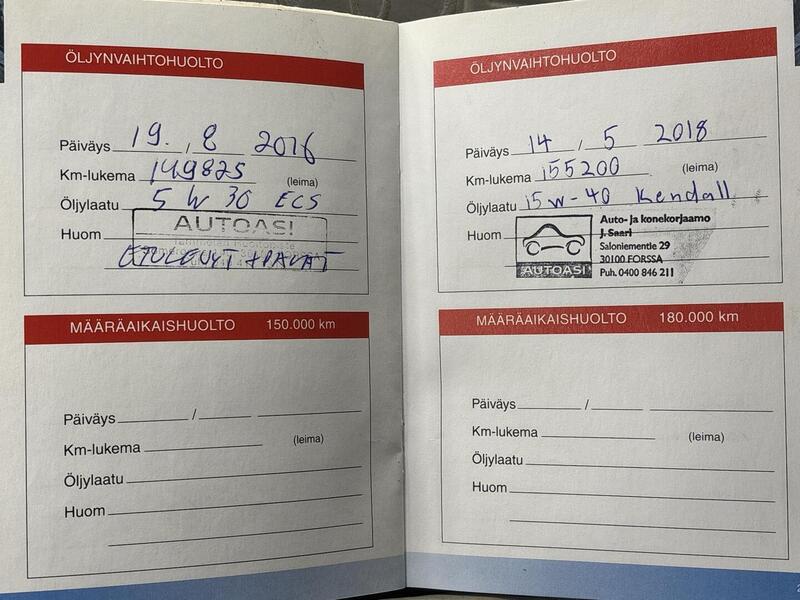 ÖLJYNVAIHTOHUOLTO
Päiväys 19. / 8 2016
Km-lukema 149825 (leima)
Öljylaatu 5 W 30 ECS
Huom AUTOASI
MÄÄRÄAIKAISHUOLTO 150.000 km
Päiväys /
Km-lukema (leima)
Öljylaatu
Huom
ÖLJYNVAIHTOHUOLTO
Päiväys 14 / 5 2018
Km-lukema 155200 (leima)
Öljylaatu 15w-40 Kendall
Huom
AUTOASI
Auto- ja konekorjaamo
J. Saari
Saloniementie 29
30100 FORSSA
Puh. 0400 846 211
MÄÄRÄAIKAISHUOLTO 180.000 km
Päiväys /
Km-lukema (leima)
Öljylaatu
Huom